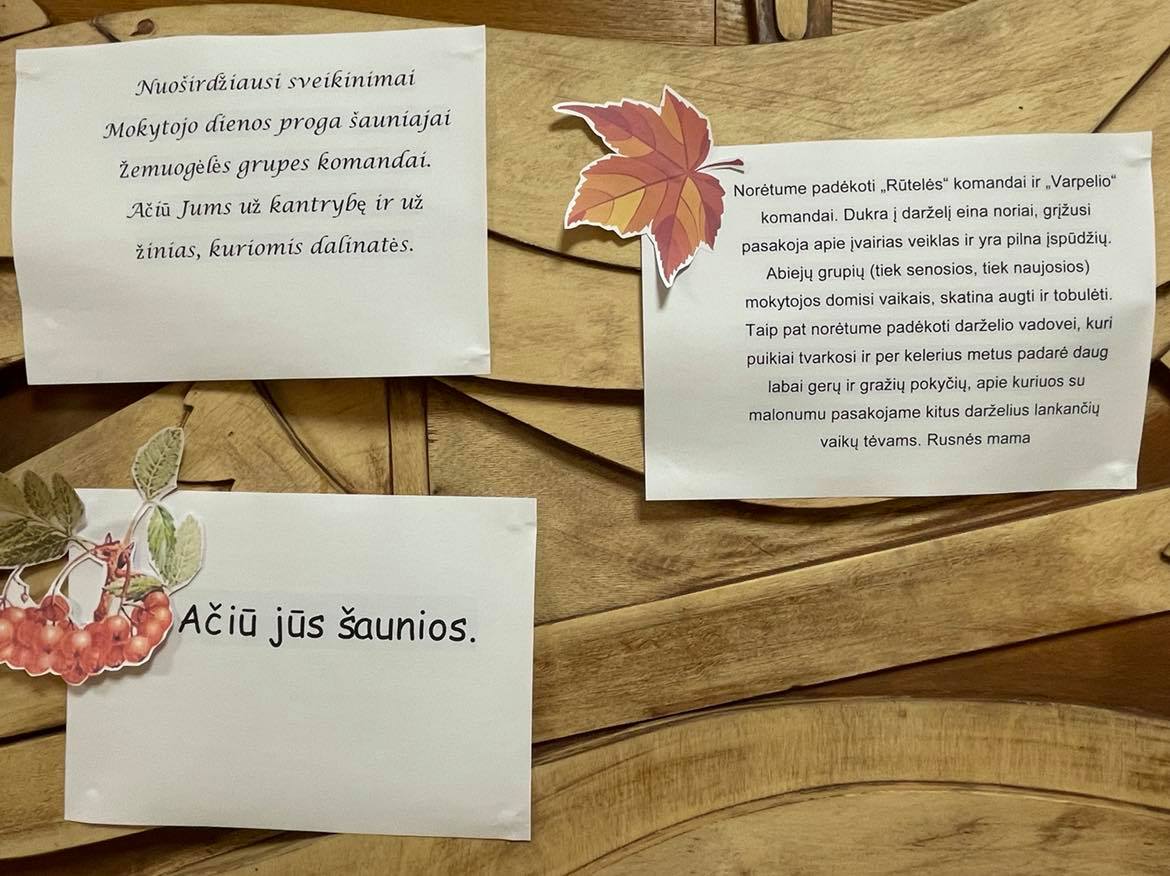 Nuoširdžiausi sveikinimai
Mokytojo dienos proga šauniajai
Žemuogėlės grupes komandai.
Ačiū Jums už kantrybę ir už
žinias, kuriomis dalinatės.
Norėtume padėkoti „Rūtelės“ komandai ir „Varpelio“
komandai. Dukra į darželį eina noriai, grįžusi
pasakoja apie įvairias veiklas ir yra pilna įspūdžių.
Abiejų grupių (tiek senosios, tiek naujosios)
mokytojos domisi vaikais, skatina augti ir tobulėti.
Taip pat norėtume padėkoti darželio vadovei, kuri
puikiai tvarkosi ir per kelerius metus padarė daug
labai gerų ir gražių pokyčių, apie kuriuos su
malonumu pasakojame kitus darželius lankančių
vaikų tėvams. Rusnės mama
Ačiū jūs šaunios.